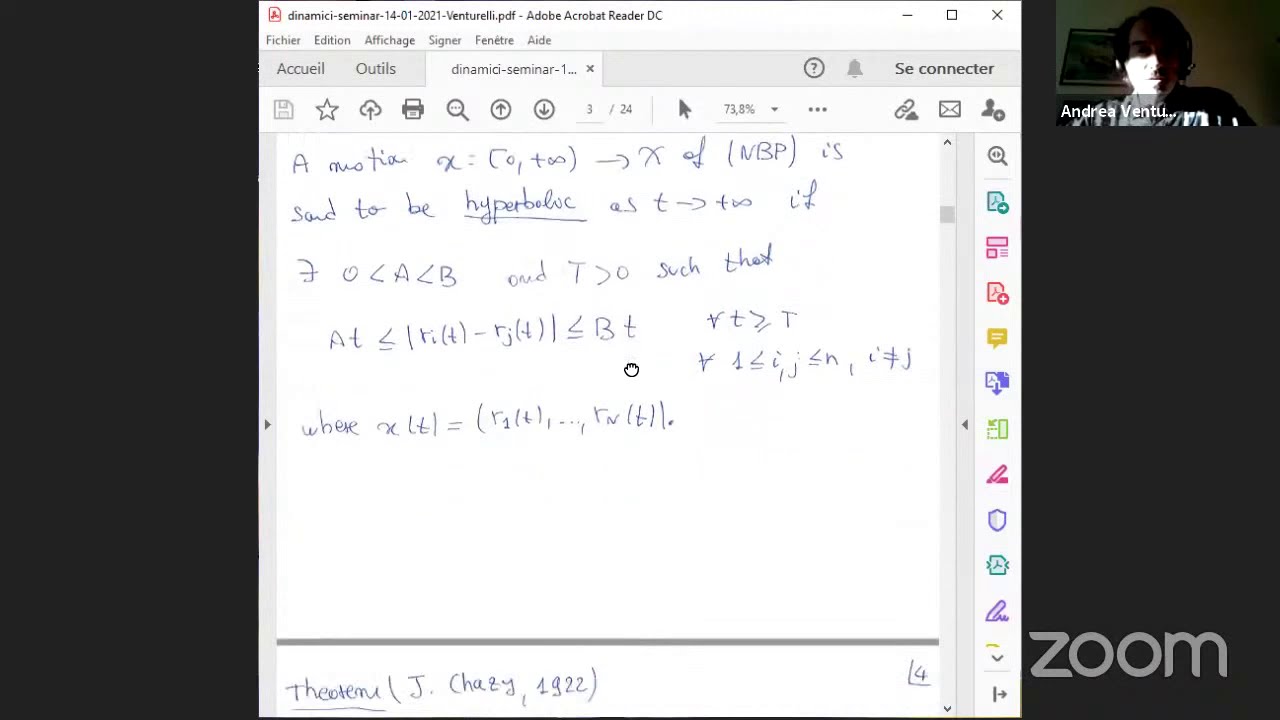 dinamici-seminar-14-01-2021-Venturelli.pdf - Adobe Acrobat Reader DC
Fichier Edition Affichage Signer Fenêtre Aide
Accueil Outils dinamici-seminar-1... × Se connecter
3 / 24 73,8%
A motion x = [0, +∞) → X of (NBP) is
said to be hyperbolic as t → +∞ if
∃ 0 < A < B and T > 0 such that
At ≤ |ri(t) - rj(t)| ≤ Bt ∀ t ≥ T
∀ 1 ≤ i,j ≤ n, i ≠ j
where x(t) = (r1(t), ..., rN(t)).
Theorem (J. Chazy, 1922) 4
Andrea Ventu...
zoom